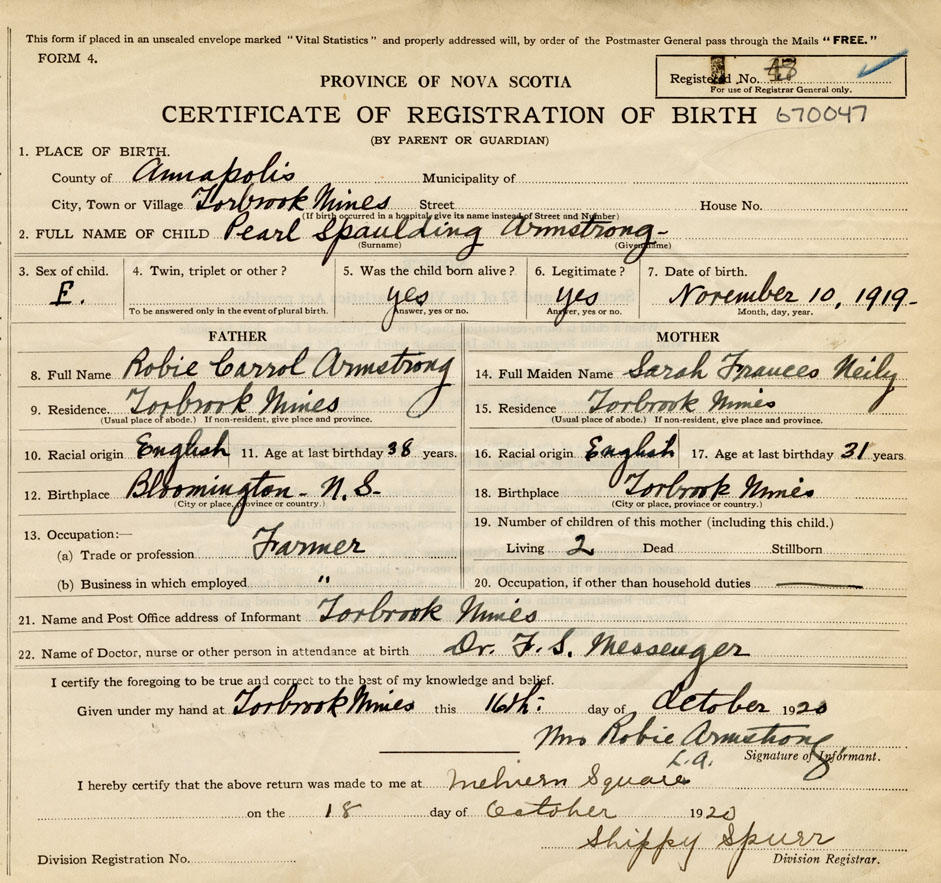 This form if placed in an unsealed envelope marked "Vital Statistics" and properly addressed will, by order of the Postmaster General pass through the Mails "FREE."
FORM 4.
Registered No. 43
For use of Registrar General only.
PROVINCE OF NOVA SCOTIA
CERTIFICATE OF REGISTRATION OF BIRTH 670047
(BY PARENT OR GUARDIAN)
1. PLACE OF BIRTH.
County of Annapolis Municipality of
City, Town or Village Torbrook Mines Street House No.
(If birth occurred in a hospital, give its name instead of Street and Number)
2. FULL NAME OF CHILD Pearl Spaulding Armstrong-
(Surname) (Given name)
3. Sex of child. 4. Twin, triplet or other? 5. Was the child born alive? 6. Legitimate? 7. Date of birth.
F. yes yes November 10, 1919-
To be answered only in the event of plural birth. Answer, yes or no. Answer, yes or no. Month, day, year.
FATHER MOTHER
8. Full Name Robie Carrol Armstrong 14. Full Maiden Name Sarah Frances Neily
9. Residence. Torbrook Mines 15. Residence Torbrook Mines
(Usual place of abode.) If non-resident, give place and province. (Usual place of abode.) If non-resident, give place and province.
10. Racial origin English 11. Age at last birthday 38 years. 16. Racial origin English 17. Age at last birthday 31 years
12. Birthplace Bloomington - N.S- 18. Birthplace Torbrook Mines
(City or place, province or country.) (City or place, province or country.)
13. Occupation:— 19. Number of children of this mother (including this child.)
(a) Trade or profession Farmer Living 2 Dead Stillborn
(b) Business in which employed " 20. Occupation, if other than household duties
21. Name and Post Office address of Informant Torbrook Mines
22. Name of Doctor, nurse or other person in attendance at birth Dr. F. S. Messenger
I certify the foregoing to be true and correct to the best of my knowledge and belief.
Given under my hand at Torbrook Mines this 16th: day of October 1920
Mrs Robie Armstrong
L.A. Signature of Informant.
I hereby certify that the above return was made to me at Melvern Square
on the 18 day of October 1920
Shippy Spurr
Division Registration No. Division Registrar.